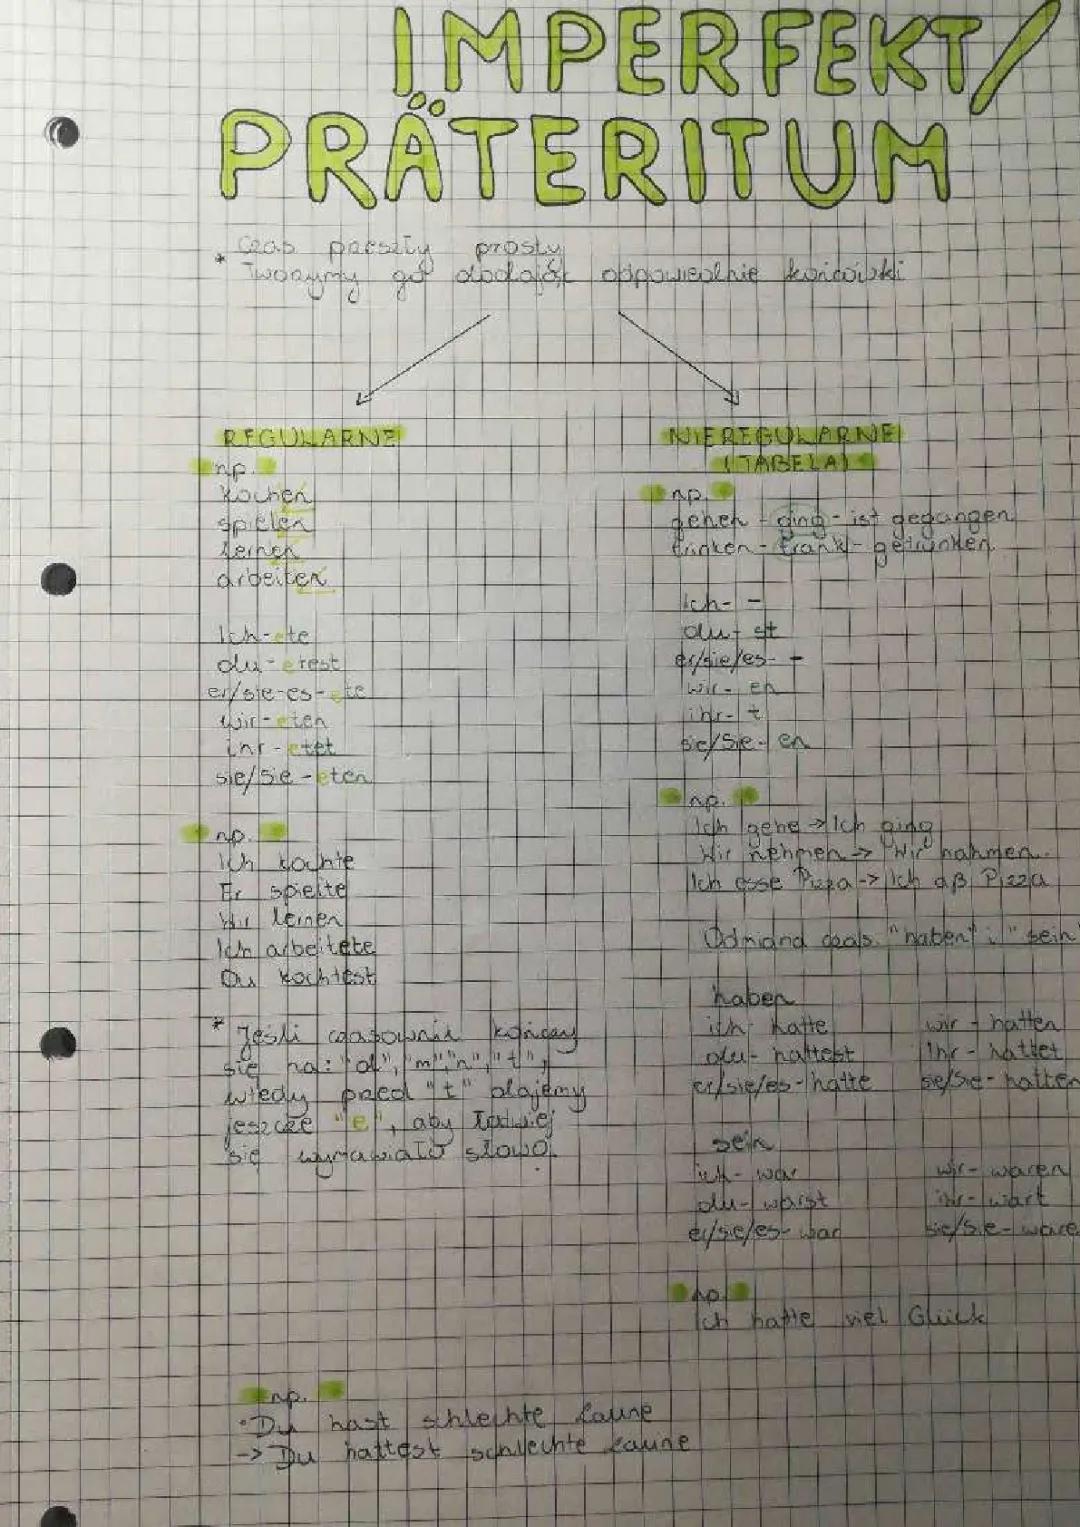 IMPERFEKT/
PRÄTERITUM
* Czas przeszły prosty
Tworzymy go dodając odpowiednie końcówki
REGULARNE
np.
kochen
spielen
lernen
arbeiten
Ich-ete
du-etest
er/sie-es-ete
wir-eten
ihr-etet
sie/Sie-eten
np.
Ich kochte
Er spielte
Wir lernen
Ich arbeitete
Du kochtest
* Jeśli czasownik kończy
się na: "d", "m", "n", "t",
wtedy przed "t" dajemy
jeszcze "e", aby łatwiej
się wymawiało słowo.
NIEREGULARNE
(TABELA)
np.
gehen - ging - ist gegangen
trinken - trank - getrunken
ich- -
du- st
er/sie/es- -
wir- en
ihr- t
sie/Sie- en
np.
Ich gehe -> Ich ging
Wir nehmen -> Wir nahmen.
Ich esse Pizza -> Ich aß Pizza
Odmiana czas. "haben" i "sein"
haben
ich- hatte wir - hatten
du- hattest Ihr - hattet
er/sie/es- hatte sie/Sie- hatten
sein
ich- war wir- waren
du- warst ihr- wart
er/sie/es- war sie/Sie- ware
np.
Ich hatte viel Glück
np.
• Du hast schlechte Laune
-> Du hattest schlechte Laune